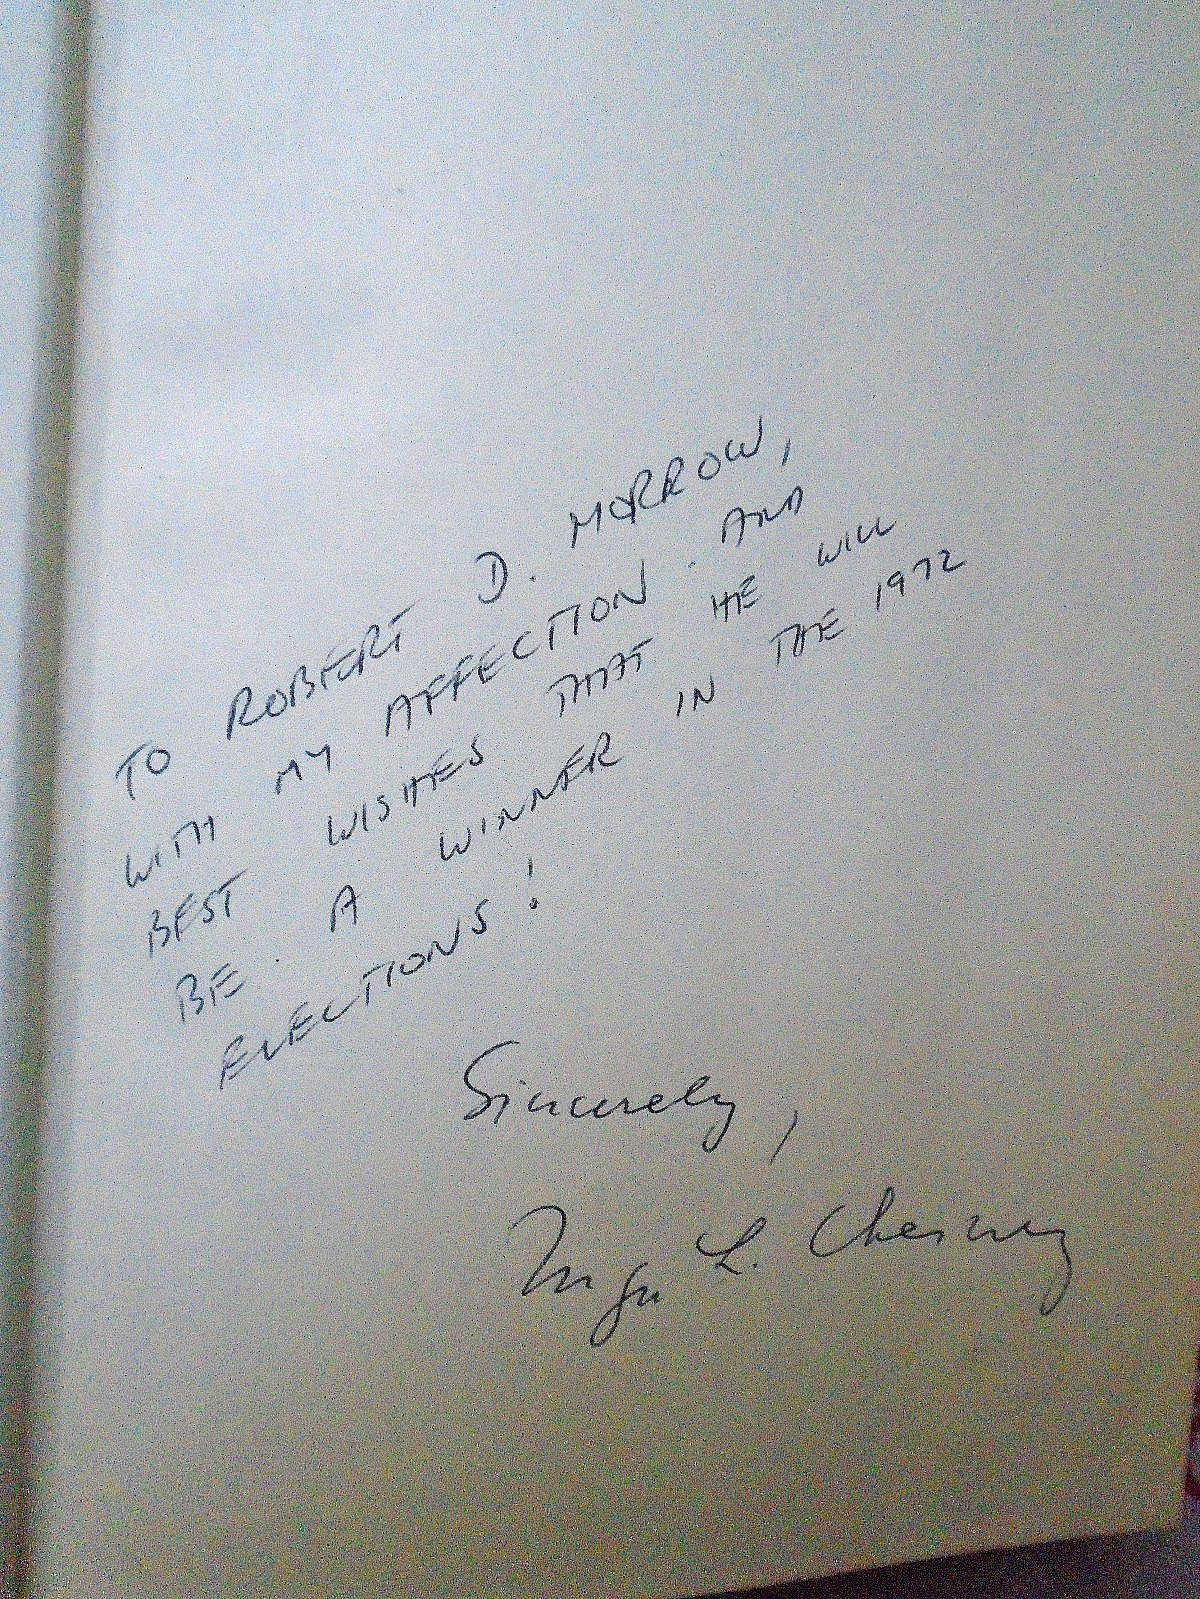 TO ROBERT D. MORROW,
WITH MY AFFECTION. AND
BEST WISHES THAT HE WILL
BE. A WINNER IN THE 1972
ELECTIONS!
Sincerely,
L.